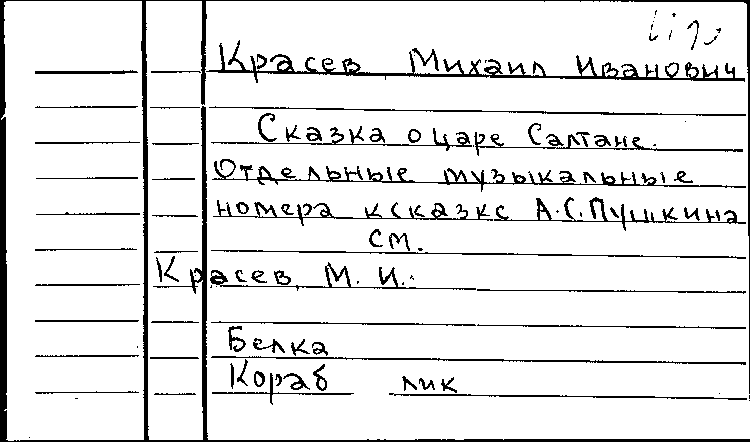 Красев Михаил Иванович
Сказка о царе Салтане.
Отдельные музыкальные
номера к сказке А.С.Пушкина
см.
Красев, М. И.:
Белка
Кораб лик